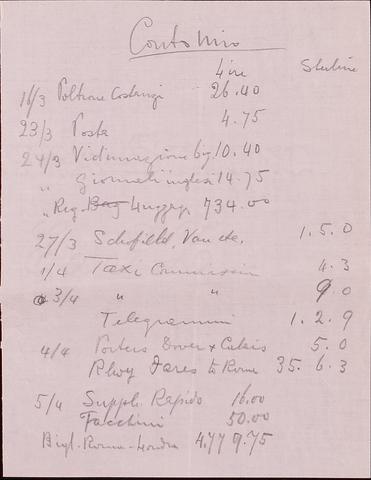 Conto Mio
Lire Sterline
16/3 Poltrone Costanzi 26.40
23/3 Posta 4.75
24/3 Vidimazione big 10.40
" Giornali inglesi 14.75
" Reg. Bag Luggage 734.00
27/3 Schofield, Van etc. 1.5.0
1/4 Taxi Commission 4.3
3/4 " " 9.0
Telegrammi 1.2.9
4/4 Porters Dover & Calais 5.0
Rlwy Fares to Rome 35.6.3
5/4 Suppl. Rapido 16.00
Facchini 50.00
Bigl. Roma-Londra 4.779.75